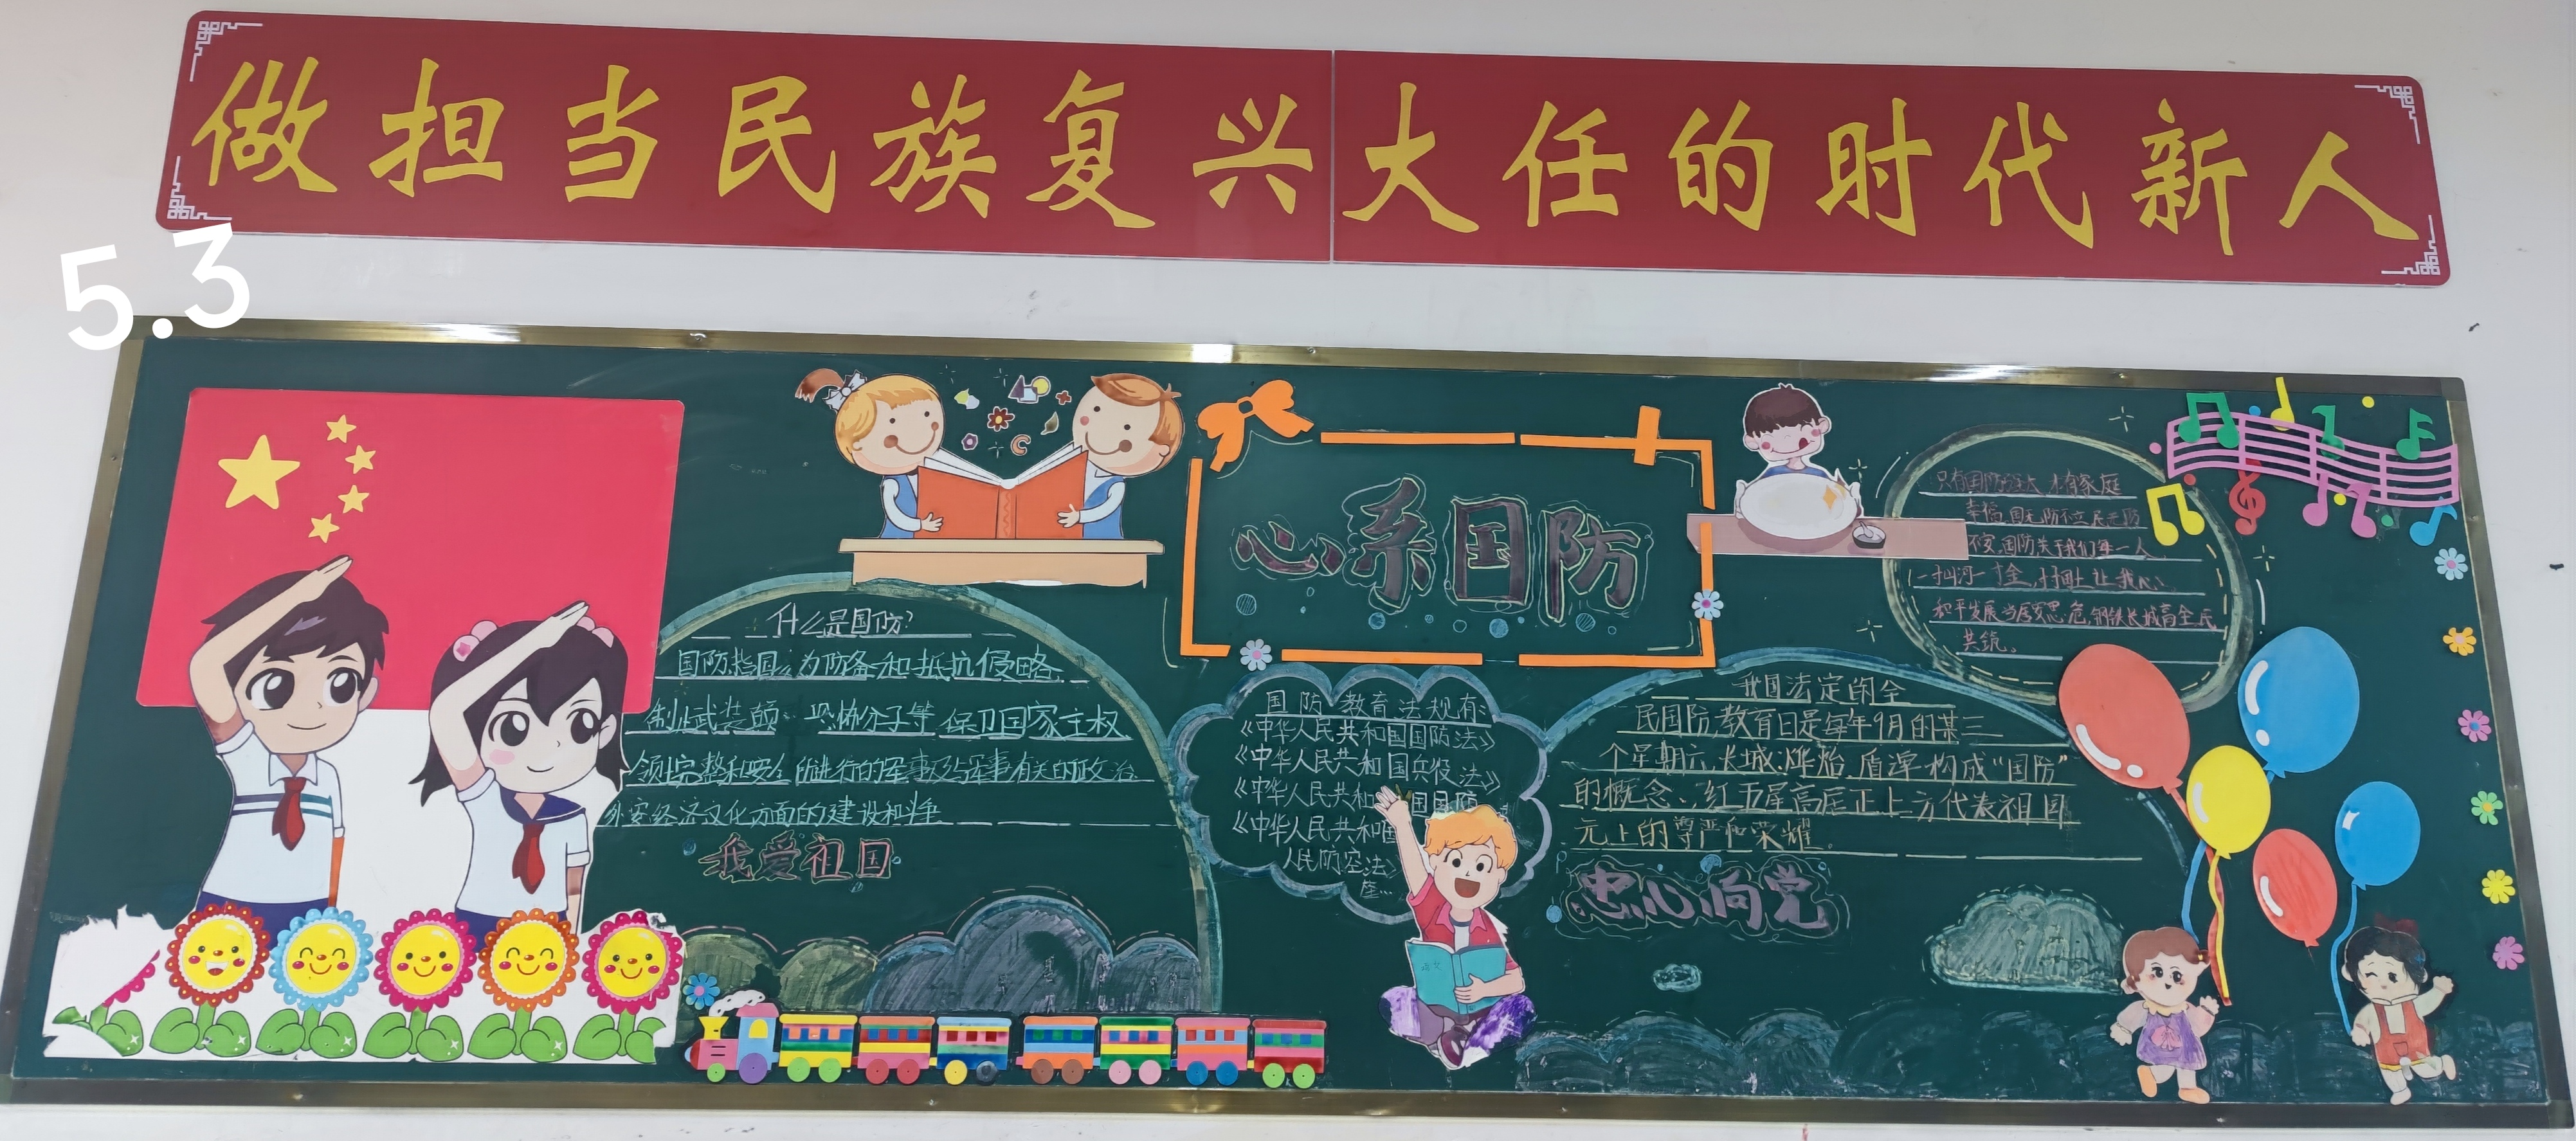 做担当民族复兴大任的时代新人
5.3
心系国防
什么是国防?
国防指国家为防备和抵抗侵略、
制止武装颠 恐怖分子等保卫国家主权
领土完整和安全所进行的军事及与军事有关的政治
外交经济文化方面的建设和斗争
我爱祖国
国防教育法规有:
《中华人民共和国国防法》
《中华人民共和国兵役法》
《中华人民共和 国国防
《中华人民共和国
人民防空法》
等...
只有国防强大才有家庭
幸福,国无防不立民无防
不安,国防关于我们每一人
一寸山河一寸金,寸寸国土让我心
和平发展当居安思危,钢铁长城靠全民
共筑。
我国法定的全
民国防教育日是每年9月的某三
个星期六,长城、烽焰、盾牌构成“国防”
的概念、红五星高居正上方代表祖国
元上的尊严和荣耀。
忠心向党